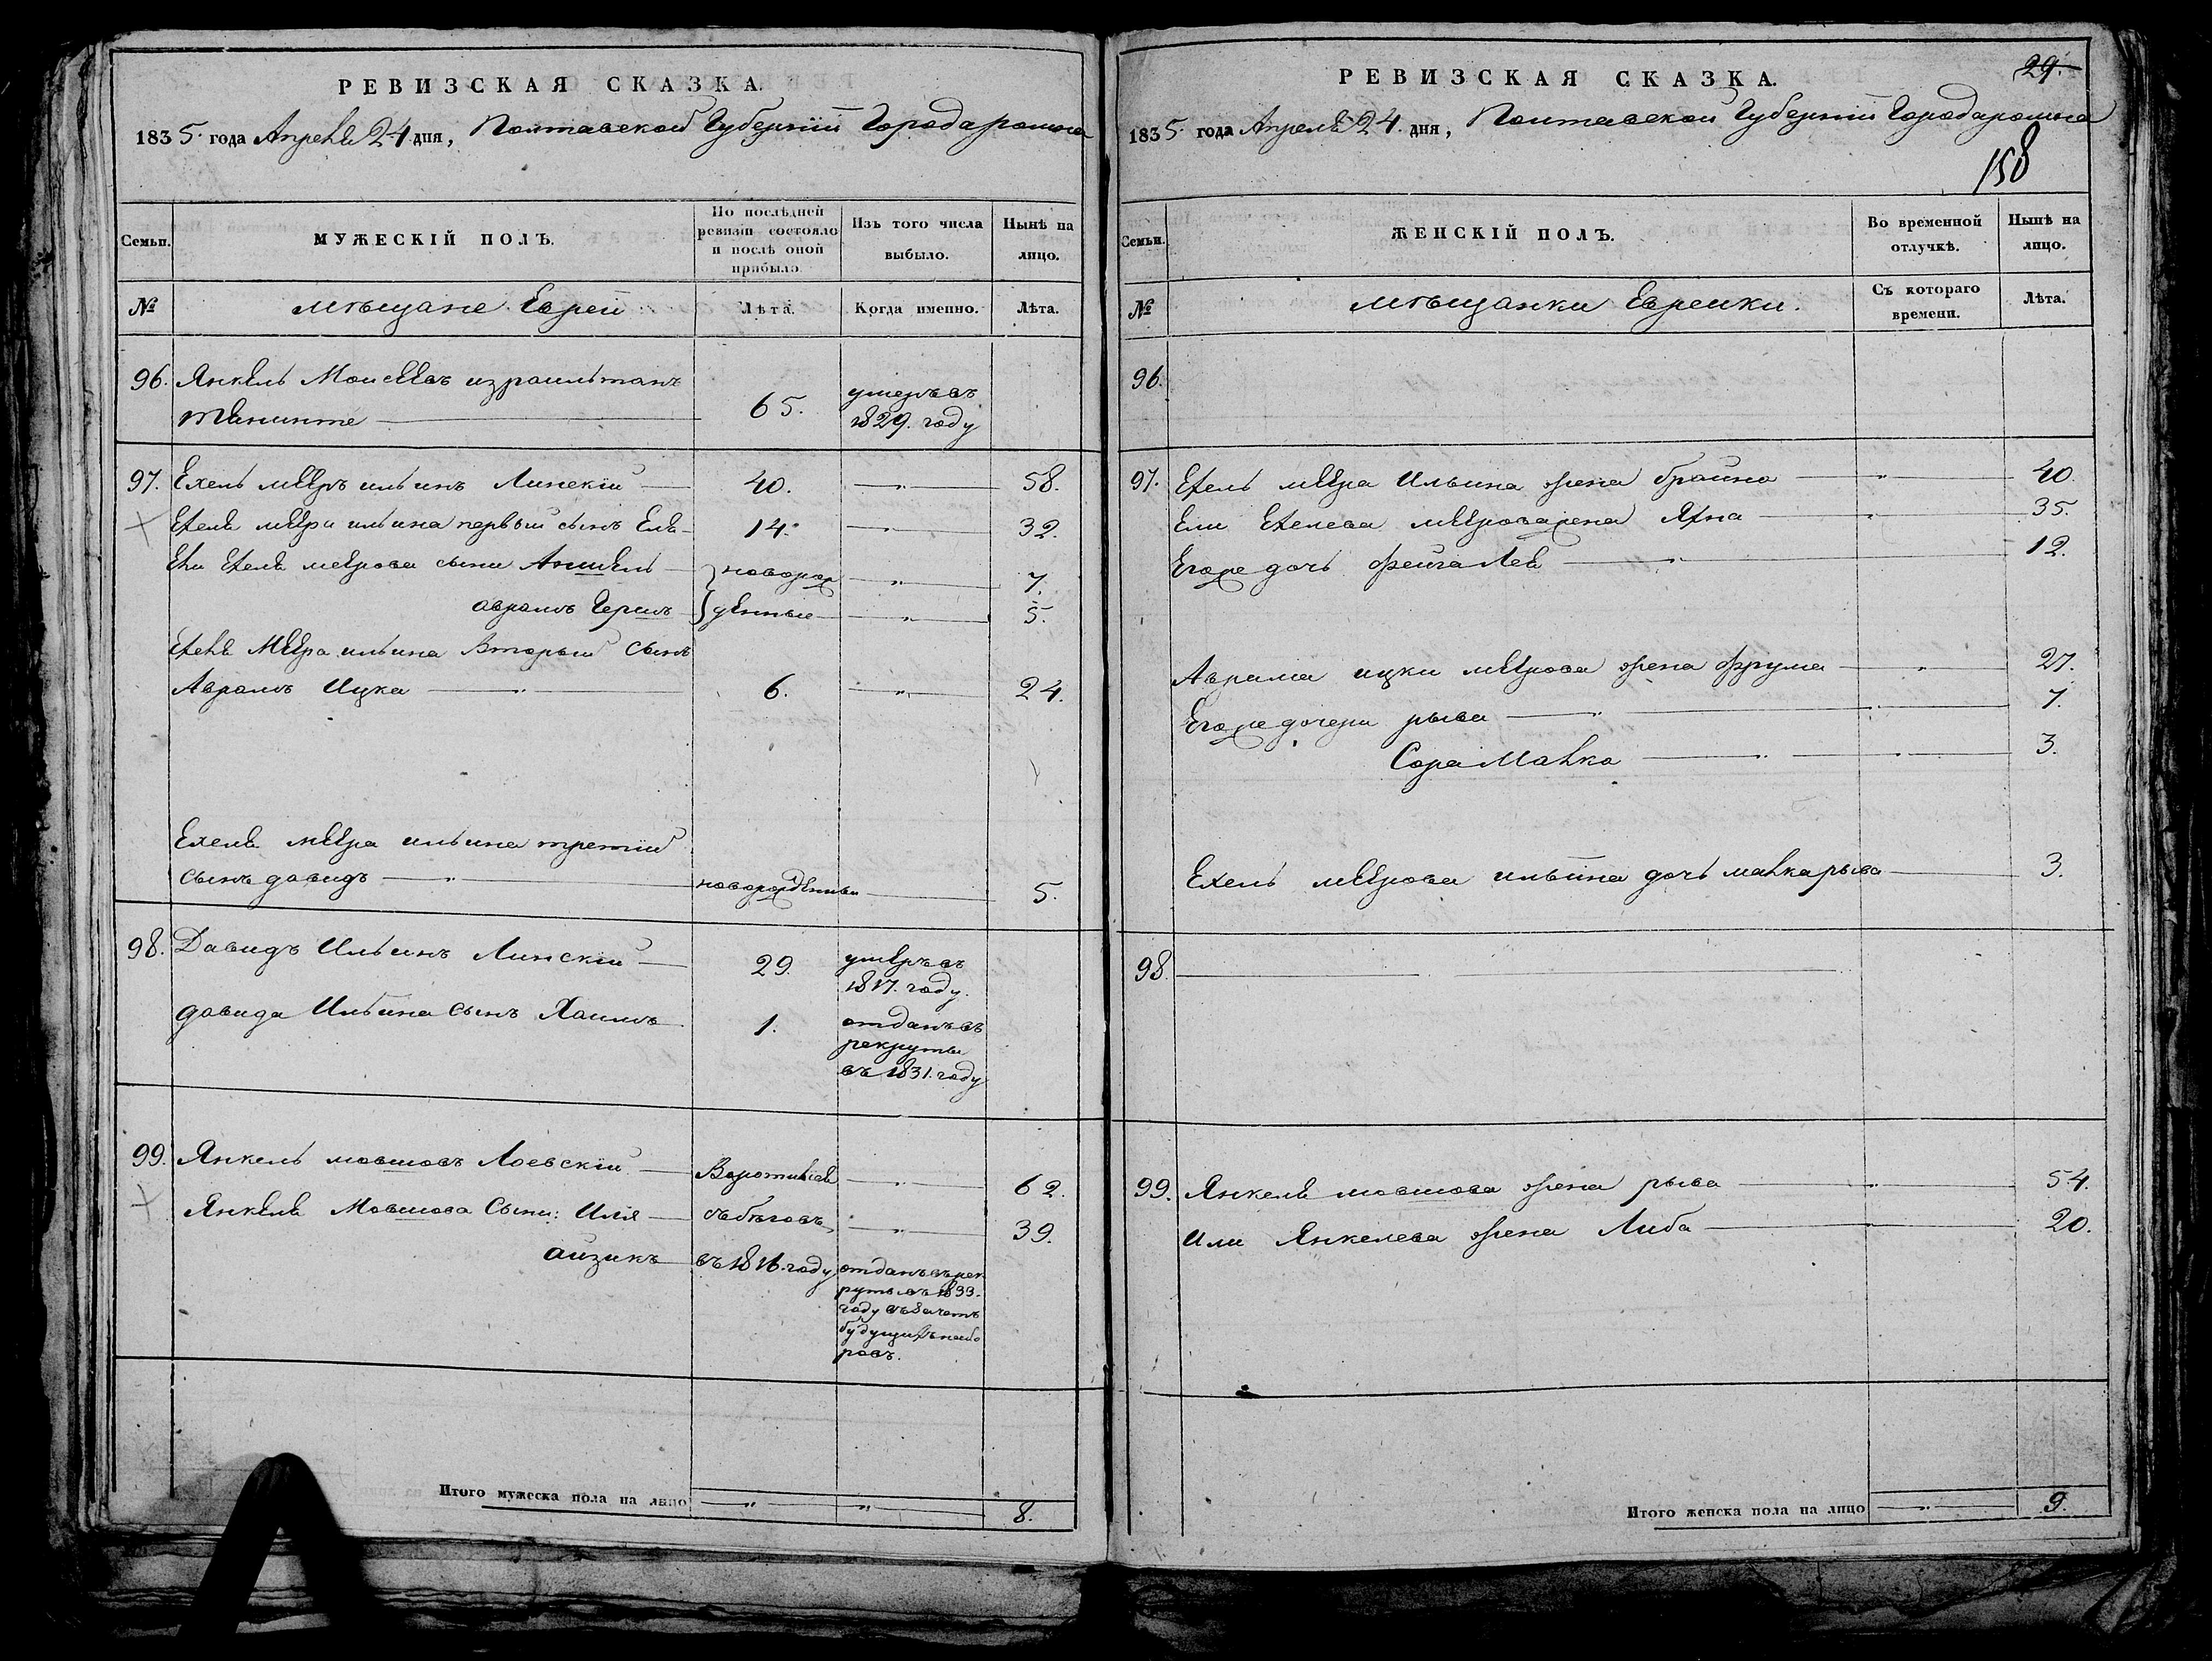 РЕВИЗСКАЯ СКАЗКА.
1835 года Апреля 24 дня, Полтавской Губернїи Города ромна
Семьи.
МУЖЕСКІЙ ПОЛЪ.
По послѣдней ревизіи состояло и послѣ оной прибыло
Изъ того числа выбыло.
Нынѣ на лицо.
№
мѣщане Евреи
Лѣта.
Когда именно.
Лѣта.
96. Янкель Моисеевъ
65. умеръ въ
1829. году
97. Ехель мееръ ильинъ Линскій 40. — „ — 58.
Ехеля меера ильина первый сынъ Еля 14. — „ — 32.
Ели Ехеля меерова сыни Аншель новорож — „ — 7.
аврамъ Герш денные — „ — 5.
Ехеля Меера ильина Вторый Сынъ
Аврамъ Ицка — „ 6. — „ — 24.
Ехеля меера ильина третій
сынъ давидъ — „ — новорожденный — 5.
98. Давидъ Ильинъ Линскій — 29. умеръ въ
1817. году.
давида Ильина сынъ Хаимъ 1. отданъ въ
рекруты
въ 1831. году
99. Янкель мовшовъ Лоевскій — Воротился — „ — 62.
Янкеля Мовшова Сыни: Иля — съ бѣговъ — „ — 39.
айзикъ — въ 1816. году отданъ въ рек
руты въ 1833.
году въ зачетъ
будущихъ набо
ровъ.
Итого мужеска пола на лицо — „ — „ — 8.
29.
РЕВИЗСКАЯ СКАЗКА.
1835 года Апреля 24. дня, Полтавской Губернїи Города ромна
158
Семьи.
ЖЕНСКІЙ ПОЛЪ.
Во временной отлучкѣ.
Нынѣ на лицо.
№
мѣщанки Евреики.
Съ котораго времени.
Лѣта.
96.
97. Ехель меера Ильина жена брайна — „ — 40.
Ели Ехелева меерова жена Яхна — „ — 35.
Егоже дочь фейга Лея — „ — 12.
Аврама ицки меерова жена фрума — „ — 27.
Егоже дочери рыва — „ — 7.
Сора Малка — „ — 3.
Ехель меерова ильина дочь малка рыва — 3.
98.
99. Янкеля мовшова жена рыва — „ — 54.
Или Янкелева жена Либа — 20.
Итого женска пола на лицо — „ — 9.